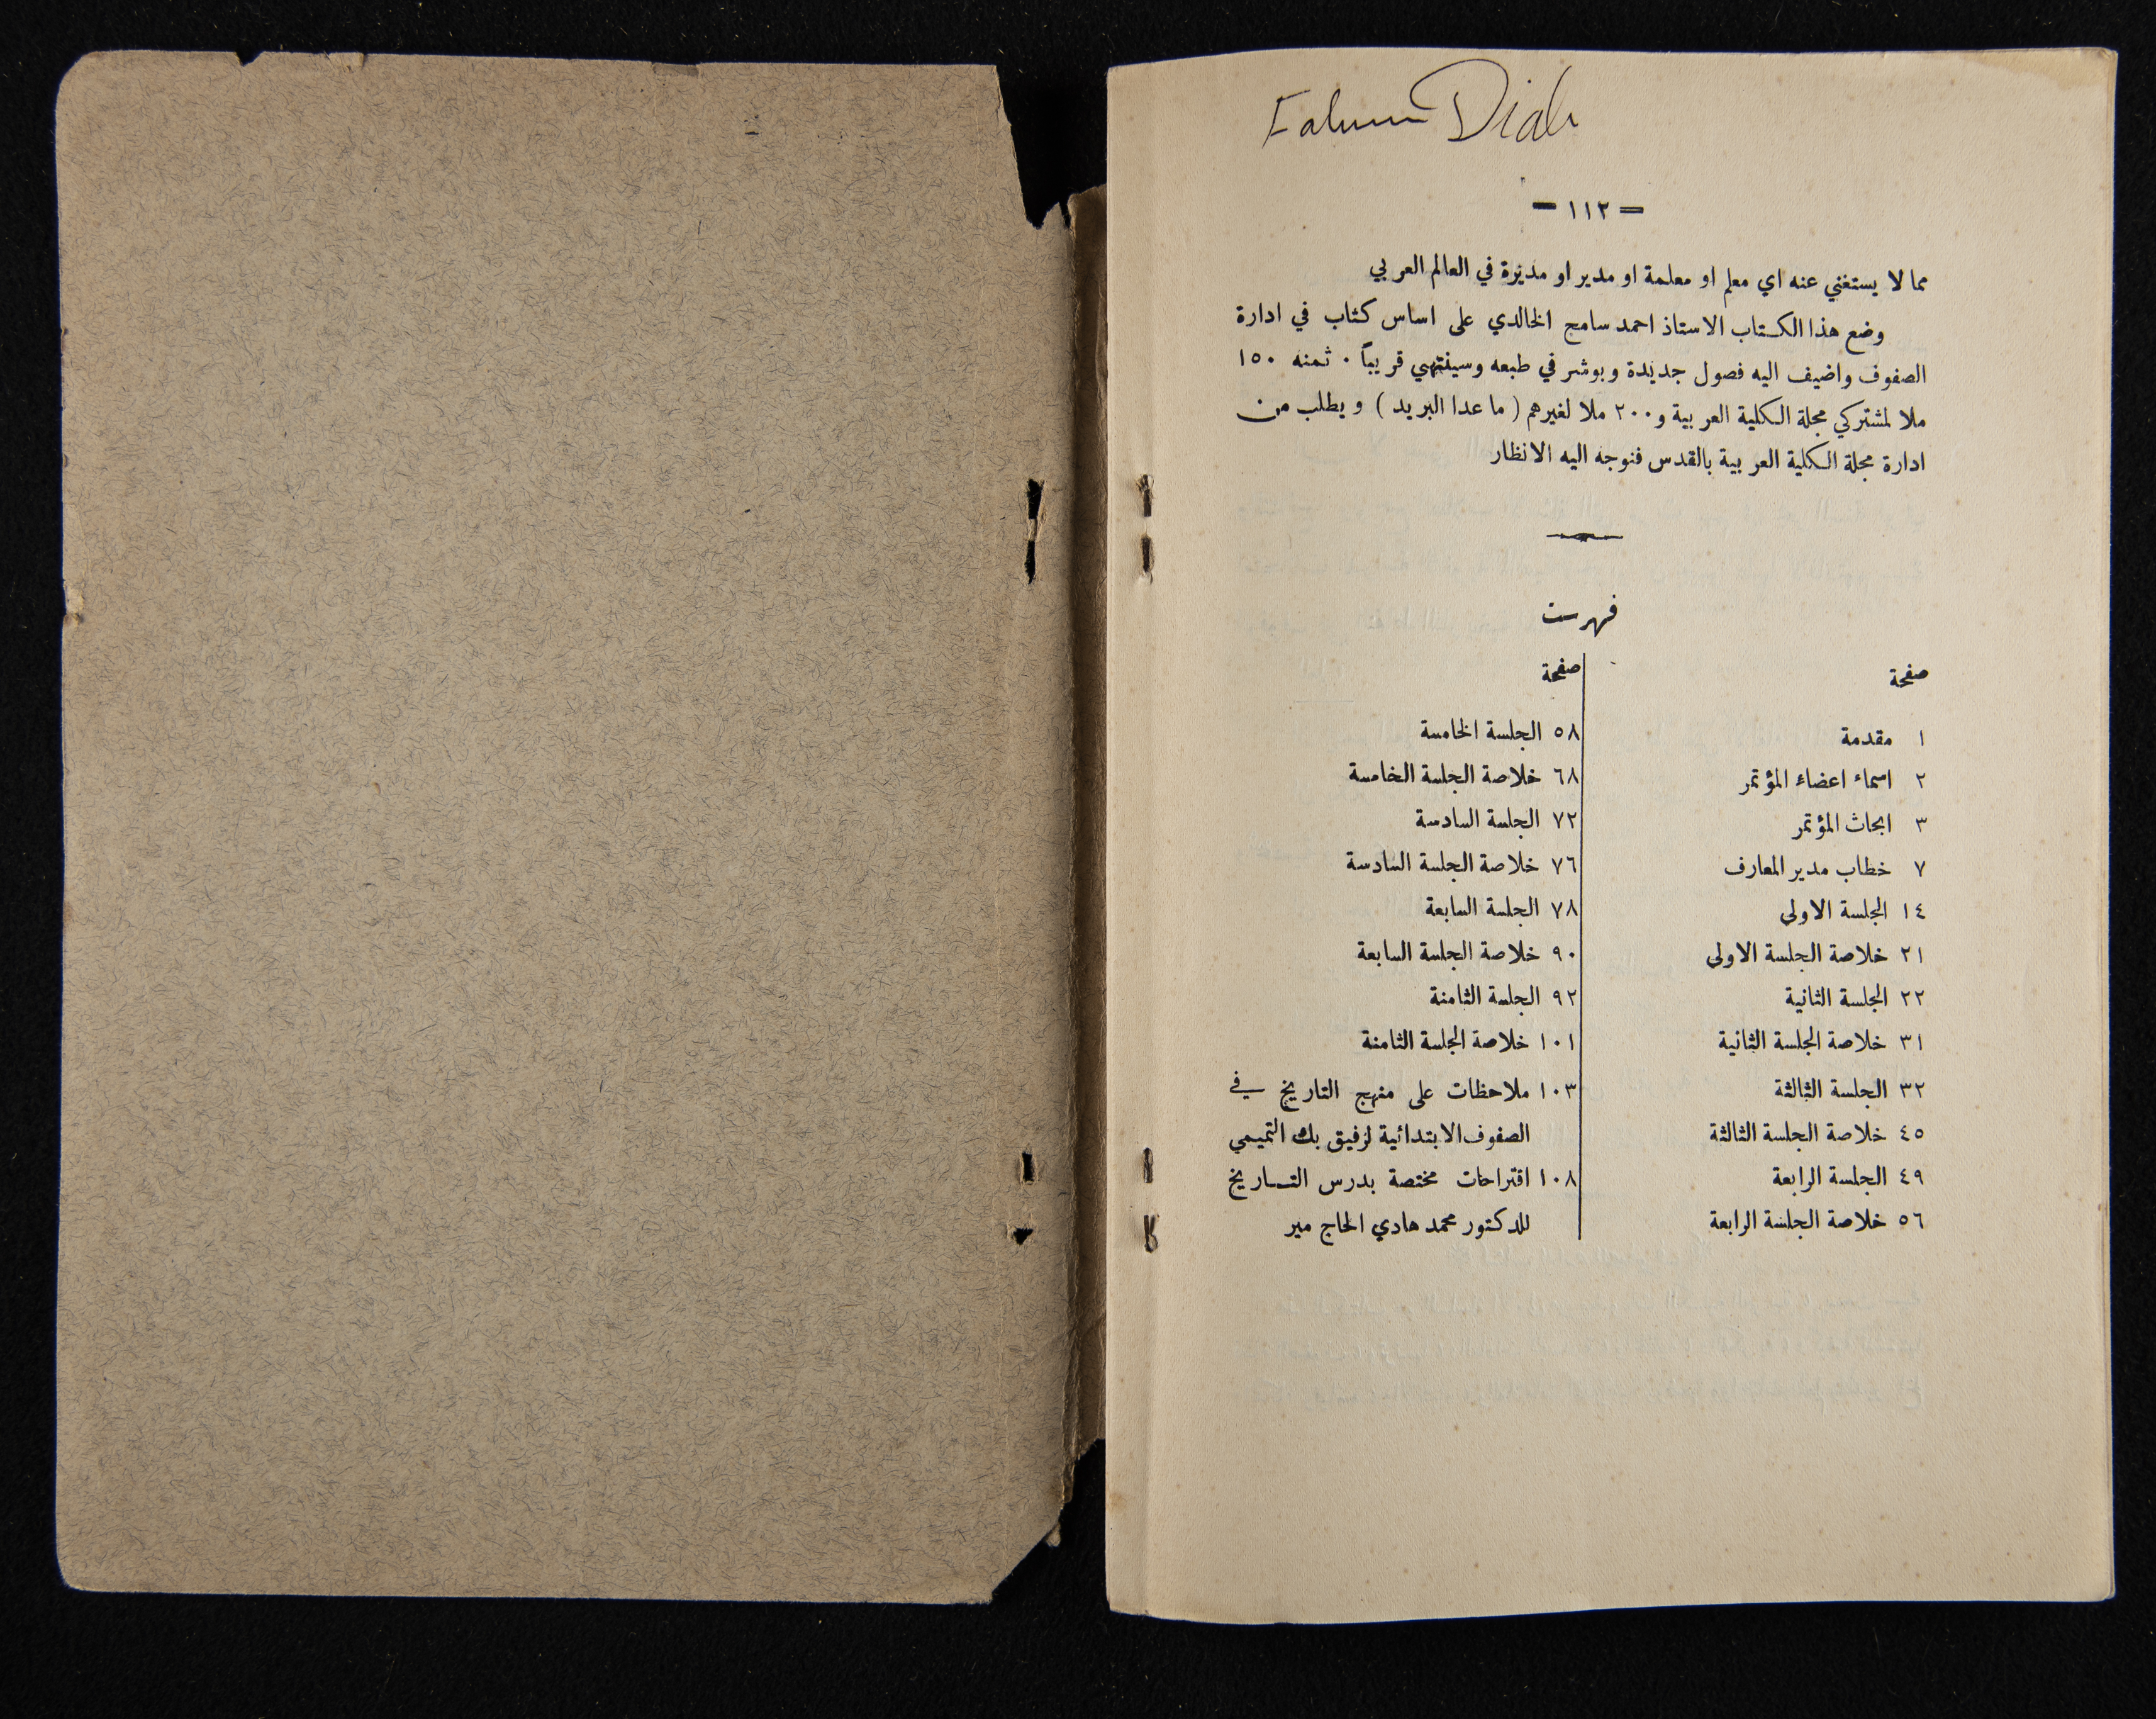 Diab
= ١١٢ =
مما لا يستغني عنه اي معلم او معلمة او مدير او مديرة في العالم العربي
وضع هذا الكتاب الاستاذ احمد سامح الخالدي على اساس كتاب في ادارة
الصفوف واضيف اليه فصول جديدة وبوشر في طبعه وسينتهي قريباً . ثمنه ١٥٠
ملا لمشتركي مجلة الكلية العربية و ٢٠٠ ملا لغيرهم ( ما عدا البريد ) ويطلب من
ادارة مجلة الكلية العربية بالقدس فنوجه اليه الانظار
فهرست
صفحة
١ مقدمة
٢ اسماء اعضاء المؤتمر
٣ ابحاث المؤتمر
٧ خطاب مدير المعارف
١٤ الجلسة الاولى
٢١ خلاصة الجلسة الاولى
٢٢ الجلسة الثانية
٣١ خلاصة الجلسة الثانية
٣٢ الجلسة الثالثة
٤٥ خلاصة الجلسة الثالثة
٤٩ الجلسة الرابعة
٥٦ خلاصة الجلسة الرابعة
صفحة
٥٨ الجلسة الخامسة
٦٨ خلاصة الجلسة الخامسة
٧٢ الجلسة السادسة
٧٦ خلاصة الجلسة السادسة
٧٨ الجلسة السابعة
٩٠ خلاصة الجلسة السابعة
٩٢ الجلسة الثامنة
١٠١ خلاصة الجلسة الثامنة
١٠٣ ملاحظات على منهج التاريخ في
الصفوف الابتدائية لرفيق بك التميمي
١٠٨ اقتراحات مختصة بدرس التاريخ
للدكتور محمد هادي الحاج مير